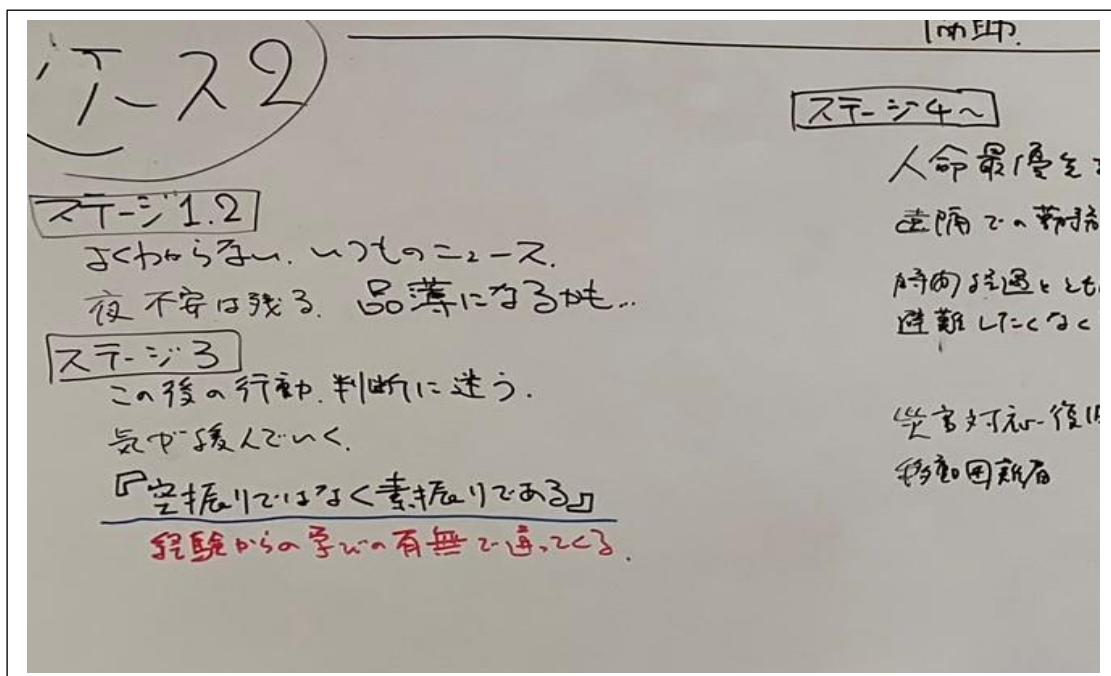 ケース2
ステージ1.2
よくわからない、いつものニュース、
夜 不安は残る、品薄になるかも…
ステージ3
この後の行動、判断に迷う。
気が緩んでいく、
『空振りではなく素振りである』
経験からの学びの有無で違ってくる。
ステージ4〜
人命最優先
遠隔での勤務
時間経過ととも
避難したくなく
災害対応-復旧
移動困難者